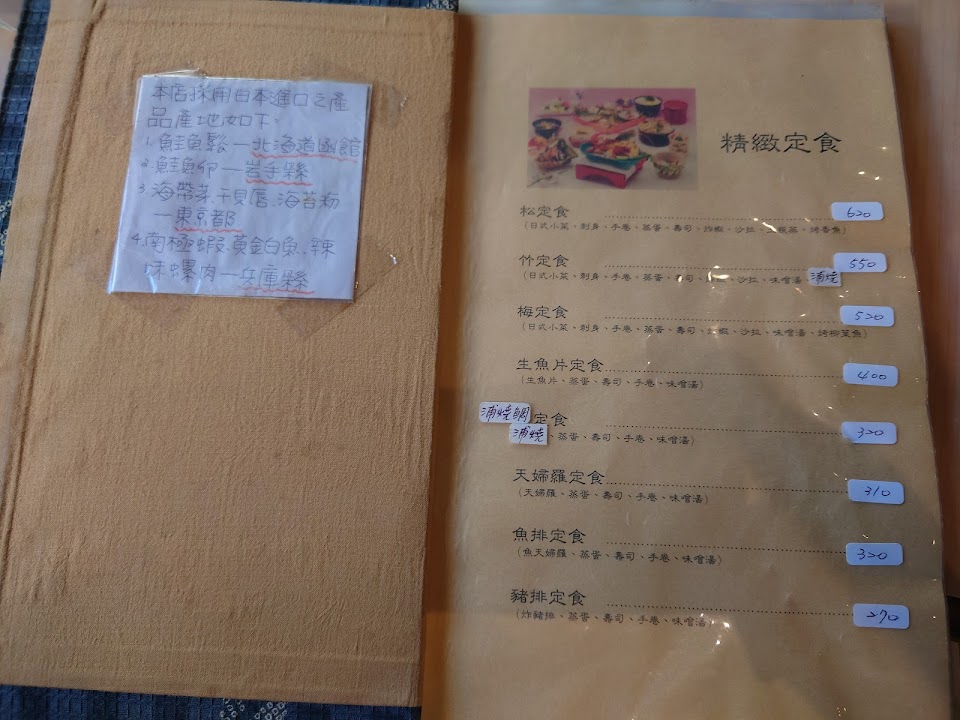 本店採用日本進口之產
品產地如下。
1. 鮭魚鬆—北海道函館
2. 鮭魚卵—岩手縣
3. 海帶芽、干貝唇、海苔粉
—東京都
4. 南極蝦、黃金白魚、辣
味螺肉—兵庫縣
精緻定食
松定食 620
(日式小菜、刺身、手卷、蒸蛋、壽司、炸蝦、沙拉、烤香魚)
竹定食 550
(日式小菜、刺身、手卷、蒸蛋、壽司、沙拉、味噌湯、浦燒
梅定食 520
(日式小菜、刺身、手卷、蒸蛋、壽司、沙拉、味噌湯、烤柳葉魚)
生魚片定食 400
(生魚片、蒸蛋、壽司、手卷、味噌湯)
浦燒鯛定食 320
浦燒、蒸蛋、壽司、手卷、味噌湯)
天婦羅定食 310
(天婦羅、蒸蛋、壽司、手卷、味噌湯)
魚排定食 320
(魚天婦羅、蒸蛋、壽司、手卷、味噌湯)
豬排定食 270
(炸豬排、蒸蛋、壽司、手卷、味噌湯)